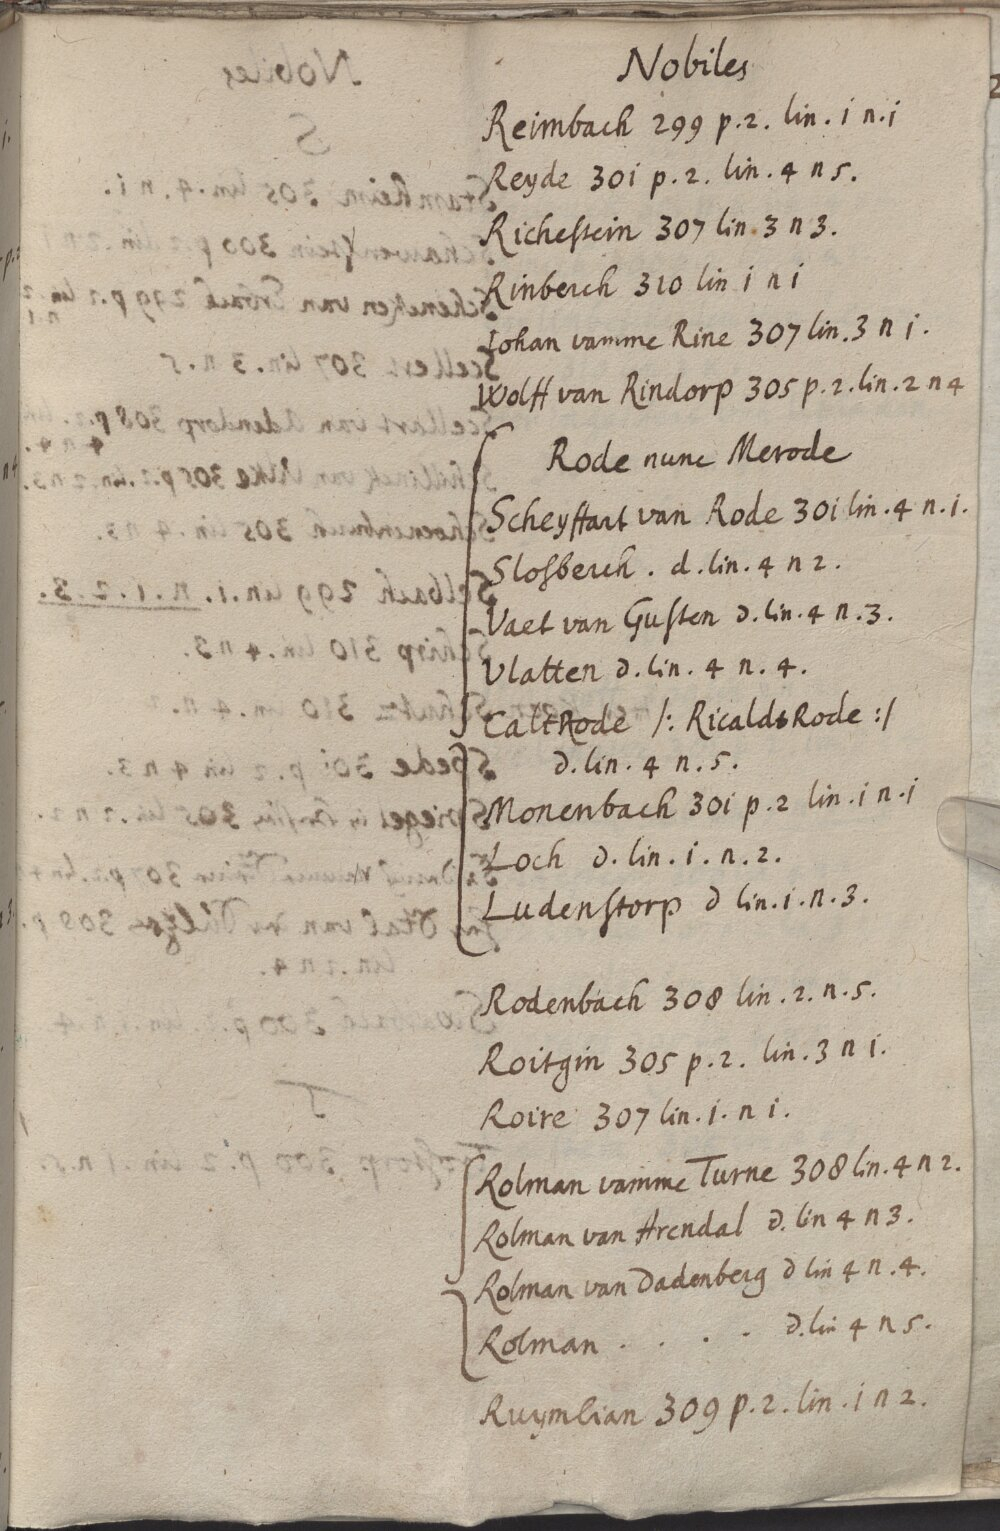 Nobiles
Reimbach 299 p.2. lin. i n.i
Reyde 30i p.2. lin. 4 n 5.
Richestein 307 lin. 3 n 3.
Rinberch 310 lin i n i
Johan vamme Rine 307 lin. 3 n i.
Wolff van Rindorp 305 p.2. lin. 2 n 4
Rode nunc Merode
Scheyffart van Rode 30i lin. 4 n. i.
Slosberch. d. lin. 4 n 2.
Vaet van Gusten d. lin. 4 n. 3.
Vlatten d. lin. 4 n. 4.
CaltRode /: Ricalds Rode :/
d. lin. 4 n. 5.
Monenbach 30i p. 2 lin. i n. i
Loch d. lin. i. n. 2.
Ludenstorp d lin. i. n. 3.
Rodenbach 308 lin. 2. n. 5.
Roitgin 305 p. 2. lin. 3 n i.
Roire 307 lin. i. n i.
Rolman vamme Turne 308 lin. 4 n 2.
Rolman van Arendal d. lin 4 n 3.
Rolman van Dadenberg d lin 4 n. 4.
Rolman . . . . d. lin 4 n 5.
Ruymlian 309 p. 2. lin. i n 2.